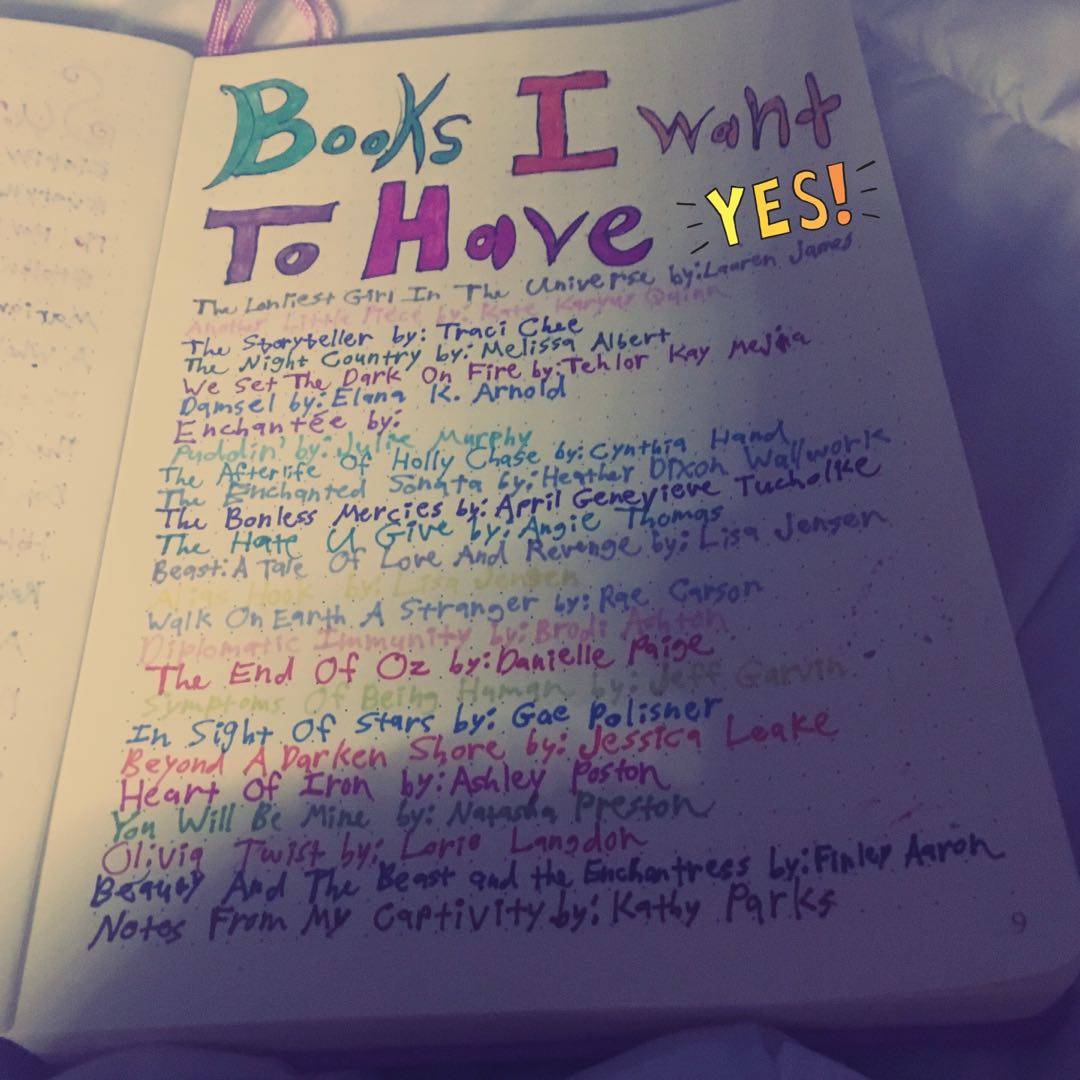 Books I Want
To Have YES!
The Lonliest Girl In The Universe by: Lauren James
Another Little Piece by: Kate Karyus Quinn
The Storyteller by: Traci Chee
The Night Country by: Melissa Albert
We Set The Dark On Fire by: Tehlor Kay Mejia
Damsel by: Elana K. Arnold
Enchantée by:
Puddin' by: Julie Murphy
The Afterlife Of Holly Chase by: Cynthia Hand
The Enchanted Sonata by: Heather Dixon Wallwork
The Bonless Mercies by: April Genevieve Tucholke
The Hate U Give by: Angie Thomas
Beast: A Tale Of Love And Revenge by: Lisa Jensen
Alias Hook by: Lisa Jensen
Walk On Earth A Stranger by: Rae Carson
Diplomatic Immunity by: Brodi Ashton
The End Of Oz by: Danielle Paige
Symptoms Of Being Human by: Jeff Garvin
In Sight Of Stars by: Gae Polisner
Beyond A Darken Shore by: Jessica Leake
Heart Of Iron by: Ashley Poston
You Will Be Mine by: Natasha Preston
Olivia Twist by: Lorie Langdon
Beauty And The Beast and the Enchantress by: Finley Aaron
Notes From My Captivity by: Kathy Parks
9